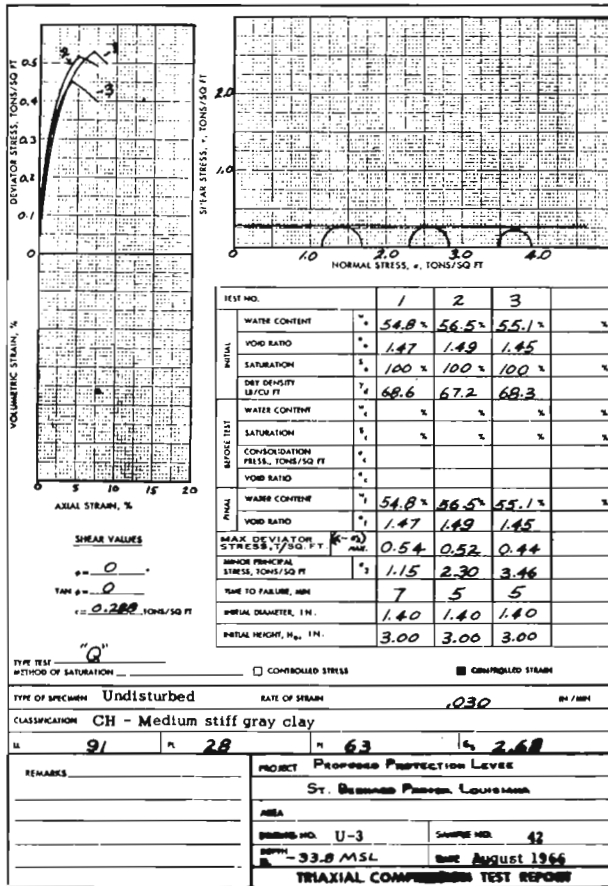 DEVIATOR STRESS, TONS/SQ FT
0.5
0.4
0.3
0.2
0.1
0
2
1
3
SHEAR STRESS, τ, TONS/SQ FT
2.0
1.0
0
1.0
2.0
3.0
4.0
NORMAL STRESS, σ, TONS/SQ FT
VOLUMETRIC STRAIN, %
0 5 10 15 20
AXIAL STRAIN, %
TEST NO. 1 2 3
INITIAL
WATER CONTENT 54.8 % 56.5 % 55.1 % %
VOID RATIO 1.47 1.49 1.45
SATURATION 100 % 100 % 100 % %
DRY DENSITY LB/CU FT 68.6 67.2 68.3
BEFORE TEST
WATER CONTENT % % % %
SATURATION % % % %
CONSOLIDATION PRESS., TONS/SQ FT
VOID RATIO
FINAL
WATER CONTENT 54.8 % 56.5 % 55.1 % %
VOID RATIO 1.47 1.49 1.45
MAX DEVIATOR STRESS, T/SQ. FT. MAX. 0.54 0.52 0.44
MINOR PRINCIPAL STRESS, TONS/SQ FT 1.15 2.30 3.46
TIME TO FAILURE, MIN 7 5 5
INITIAL DIAMETER, IN. 1.40 1.40 1.40
INITIAL HEIGHT, H₀, IN. 3.00 3.00 3.00
SHEAR VALUES
φ = 0 °
TAN φ = 0
TONS/SQ FT
TYPE TEST "Q"
METHOD OF SATURATION
CONTROLLED STRESS
CONTROLLED STRAIN
TYPE OF SPECIMEN Undisturbed RATE OF STRAIN .030 IN / MIN
CLASSIFICATION CH - Medium stiff gray clay
LL 91 PL 28 PI 63 2.68
REMARKS
PROJECT PROPOSED PROTECTION LEVEE
ST. BERNARD PARISH, LOUISIANA
AREA
BORING NO. U-3 SAMPLE NO. 42
DEPTH -33.8 MSL DATE August 1966
TRIAXIAL COMPRESSION TEST REPORT